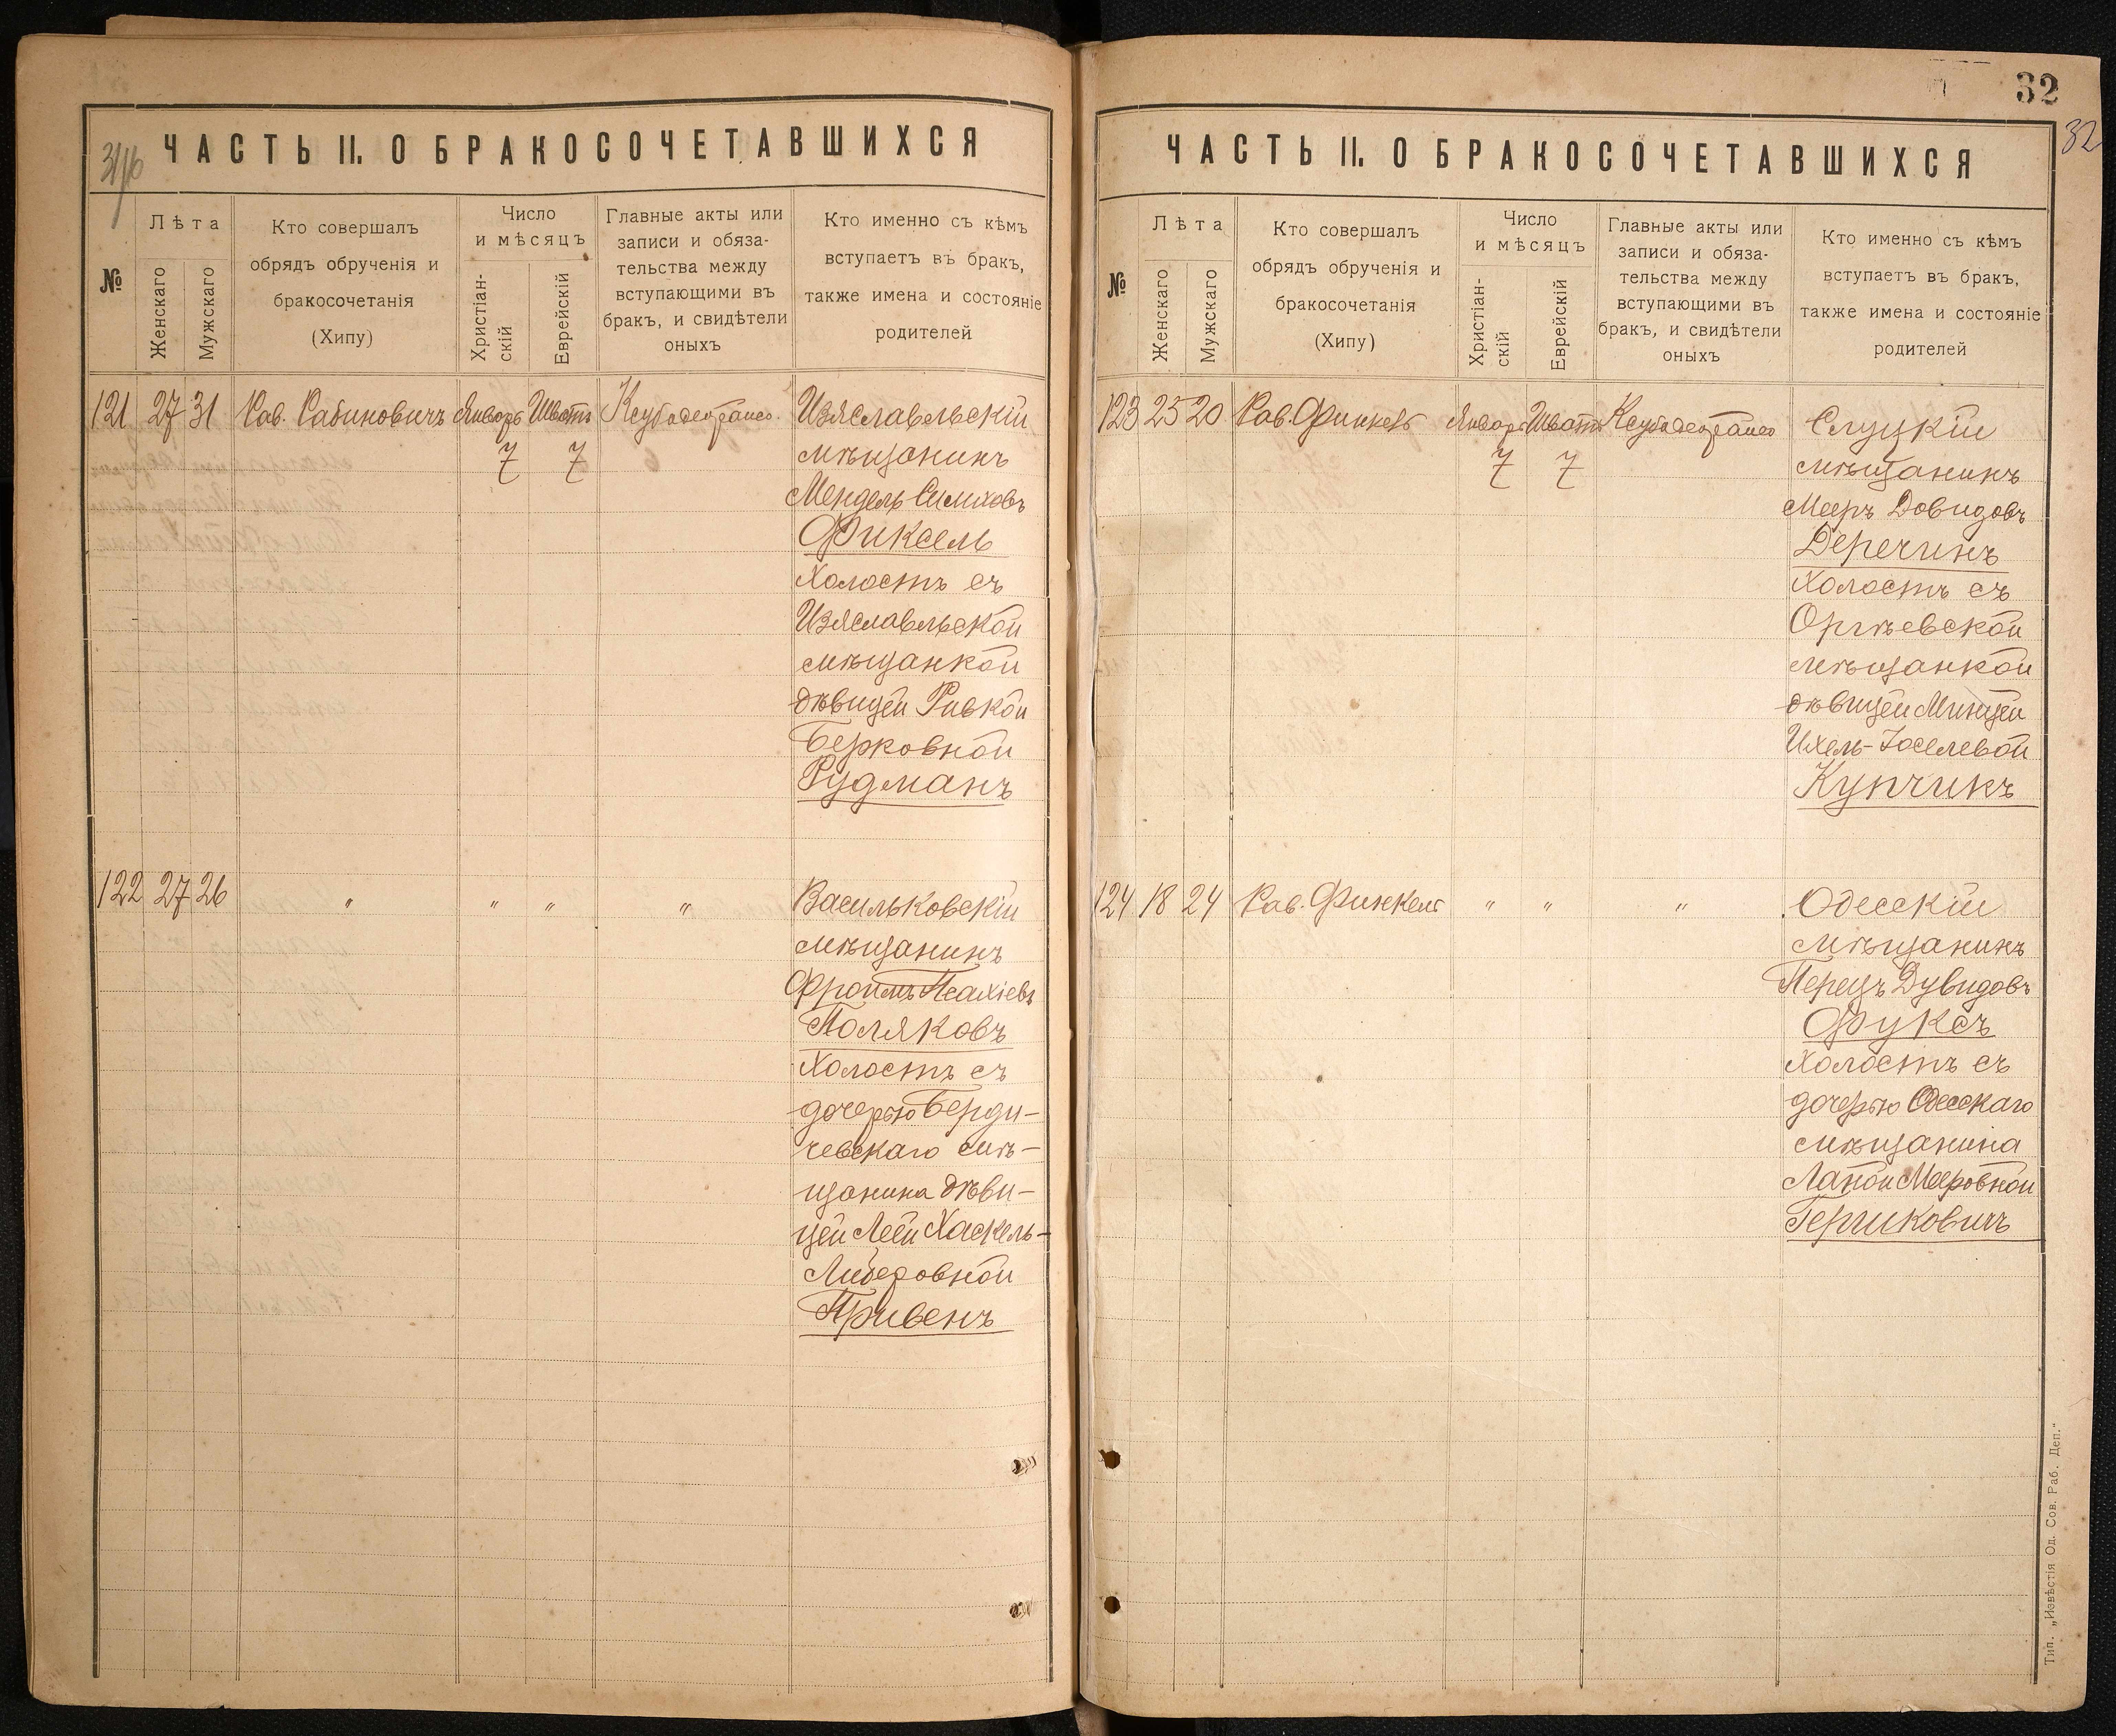 ЧАСТЬ II. О БРАКОСОЧЕТАВШИХСЯ
№
Лѣта
Женскаго
Мужскаго
Кто совершалъ
обрядъ обрученія и
бракосочетанія
(Хипу)
Число
и мѣсяцъ
Христіан-
скій
Еврейскій
Главные акты или
записи и обяза-
тельства между
вступающими въ
бракъ, и свидѣтели
оныхъ
Кто именно съ кѣмъ
вступаетъ въ бракъ,
также имена и состояніе
родителей
121 27 31 Рав. Рабиновичъ Январь Шватъ
7 7
Изяславльскій
мѣщанинъ
Мендель Симховъ
Фиксель
холостъ съ
Изяславльской
мѣщанкой
дѣвицей Ривкой
Берковной
Рудманъ
122 27 26 " " " "
Васильковскій
мѣщанинъ
Фроимъ Псахіевъ
Поляковъ
холостъ съ
дочерью Берди-
чевскаго мѣ-
щанина дѣви-
цей Леей Хаскель-
Либеровной
Привенъ
32
32
ЧАСТЬ II. О БРАКОСОЧЕТАВШИХСЯ
№
Лѣта
Женскаго
Мужскаго
Кто совершалъ
обрядъ обрученія и
бракосочетанія
(Хипу)
Число
и мѣсяцъ
Христіан-
скій
Еврейскій
Главные акты или
записи и обяза-
тельства между
вступающими въ
бракъ, и свидѣтели
оныхъ
Кто именно съ кѣмъ
вступаетъ въ бракъ,
также имена и состояніе
родителей
123 25 20 Рав. Финкель Январь Шватъ
7 7
Слуцкій
мѣщанинъ
Мееръ Довидовъ
Деречинъ
холостъ съ
Оргѣевской
мѣщанкой
дѣвицей Минцей
Ихель-Іоселевой
Купчикъ
124 18 24 Рав. Финкель " " "
Одесскій
мѣщанинъ
Перецъ Дувидовъ
Фуксъ
холостъ съ
дочерью Одесскаго
мѣщанина
Мееровной
Гершковичъ
Тип. „Извѣстія Од. Сов. Раб. Деп."